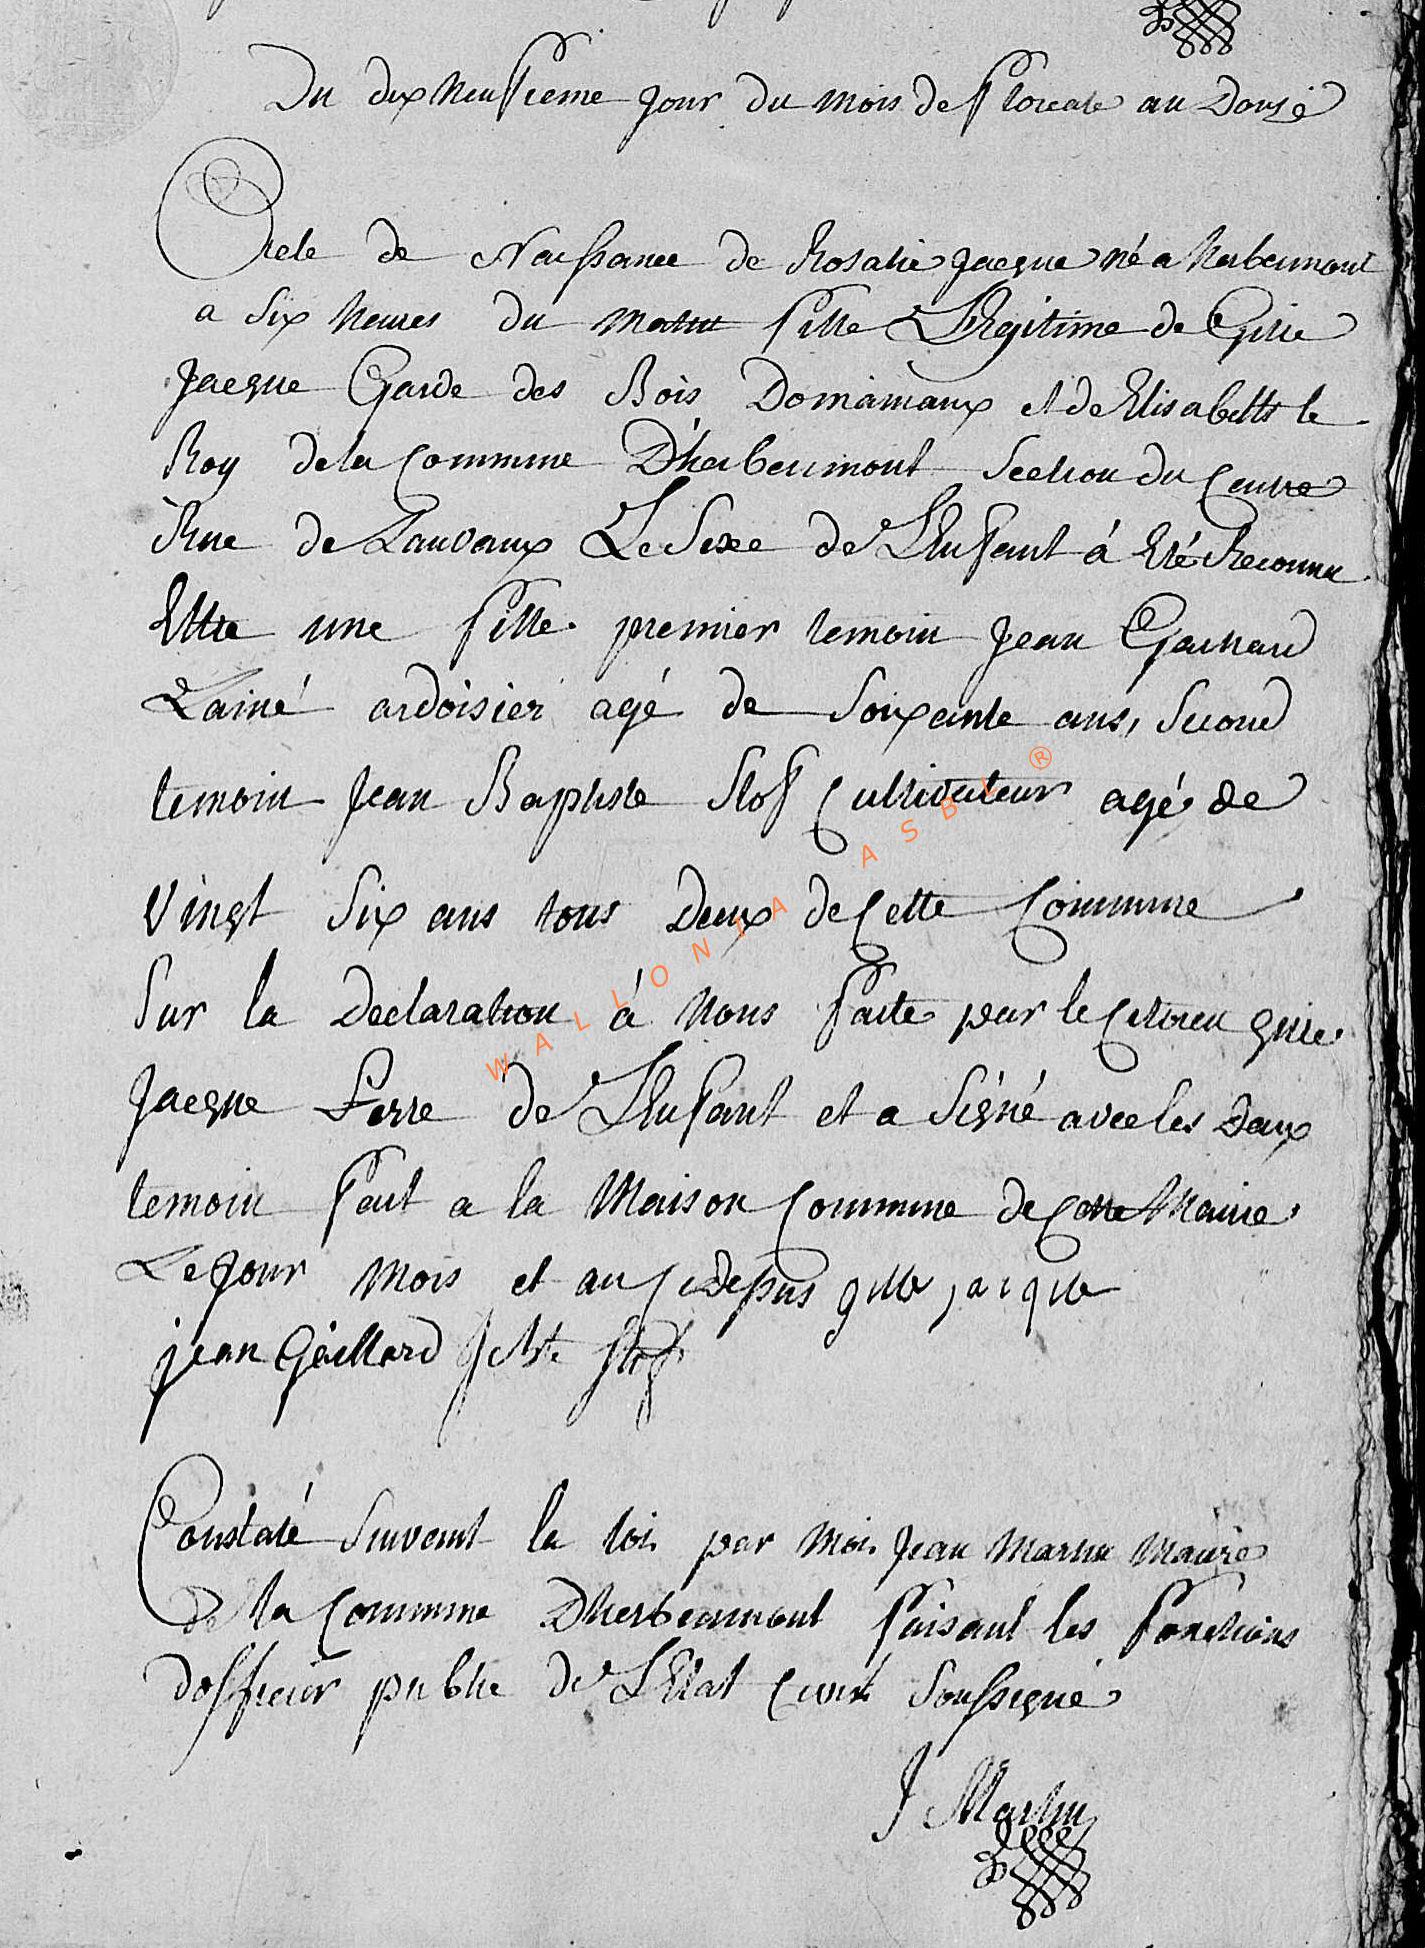 Du dix Neufieme Jour du mois de floreale an Douze
Acte de Naissance de Rosalie Jacque né a Herbeumont
a Six heures du matin fille Légitime de Gille
Jacque Garde des Bois Domaniaux et de Elisabeth le
Roy de la Commune D'herbeumont Section du Centre
Rue de Lauvaux Le Sexe de L'Enfant á Eté Reconnu
Ettre une fille premier temoin Jean Gaillard
Lainé ardoisier agé de Soixante ans, Second
temoin Jean Baptiste Slof Cultivateur agé de
Vingt Six ans tous Deux de Cette Commune
Sur la Declaration á Nous faite par le Citoien gille
Jacque Perre de L'Enfant et a Signé avec les Deux
temoin fait a la Maison Commune de Cette Mairie
Le Jour Mois et an Cidepus gille jacque
jean Gaillard J Bte Slof
Constaté Suivant la loi par Moi Jean Martin Maire
de la Commune Dherbeumont faisant les fonctions
dofficier public de L'Etat Civil Soussigné
J Martin
WALLONIA ASBL ®